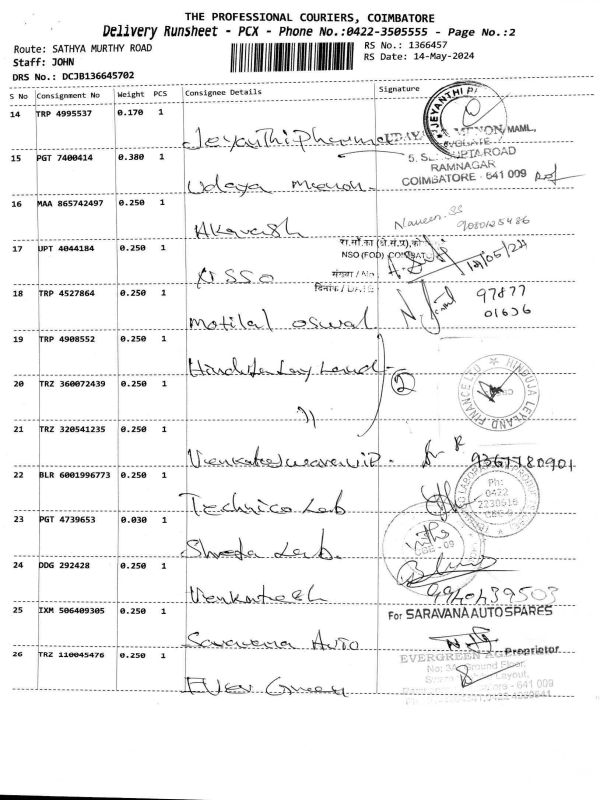 THE PROFESSIONAL COURIERS, COIMBATORE
Delivery Runsheet - PCX - Phone No.:0422-3505555 - Page No.:2
Route: SATHYA MURTHY ROAD
RS No.: 1366457
Staff: JOHN
RS Date: 14-May-2024
DRS No.: DCJB136645702
S No Consignment No Weight PCS Consignee Details Signature
14 TRP 4995537 0.170 1
Jeyanthi pharma
JEYANTHI
MENON, MAML,
15 PGT 7400414 0.380 1
ROAD
RAMNAGAR
COIMBATORE - 641 009
Udaya menon.
16 MAA 865742497 0.250 1
Naveen. SS
9080125486
Akavash
17 UPT 4044184 0.250 1
NSO (FOD)
NSSO
14/05/24
18 TRP 4527864 0.250 1
97877
01636
Motilal oswal
19 TRP 4908552 0.250 1
Hinduja Leyland
HINDUJA LEYLAND FINANCE LTD
20 TRZ 360072439 0.250 1
2
21 TRZ 320541235 0.250 1
9367780901
22 BLR 6001996773 0.250 1
Ph:
0422
Technico Lab
23 PGT 4739653 0.030 1
Lab.
24 DDG 292428 0.250 1
Venkatesh
9940439503
25 IXM 506409305 0.250 1
For SARAVANA AUTO SPARES
Saravana Auto
Proprietor
26 TRZ 110045476 0.250 1
EVERGREEN
Ground Floor,
Layout,
641 009
Ever Green